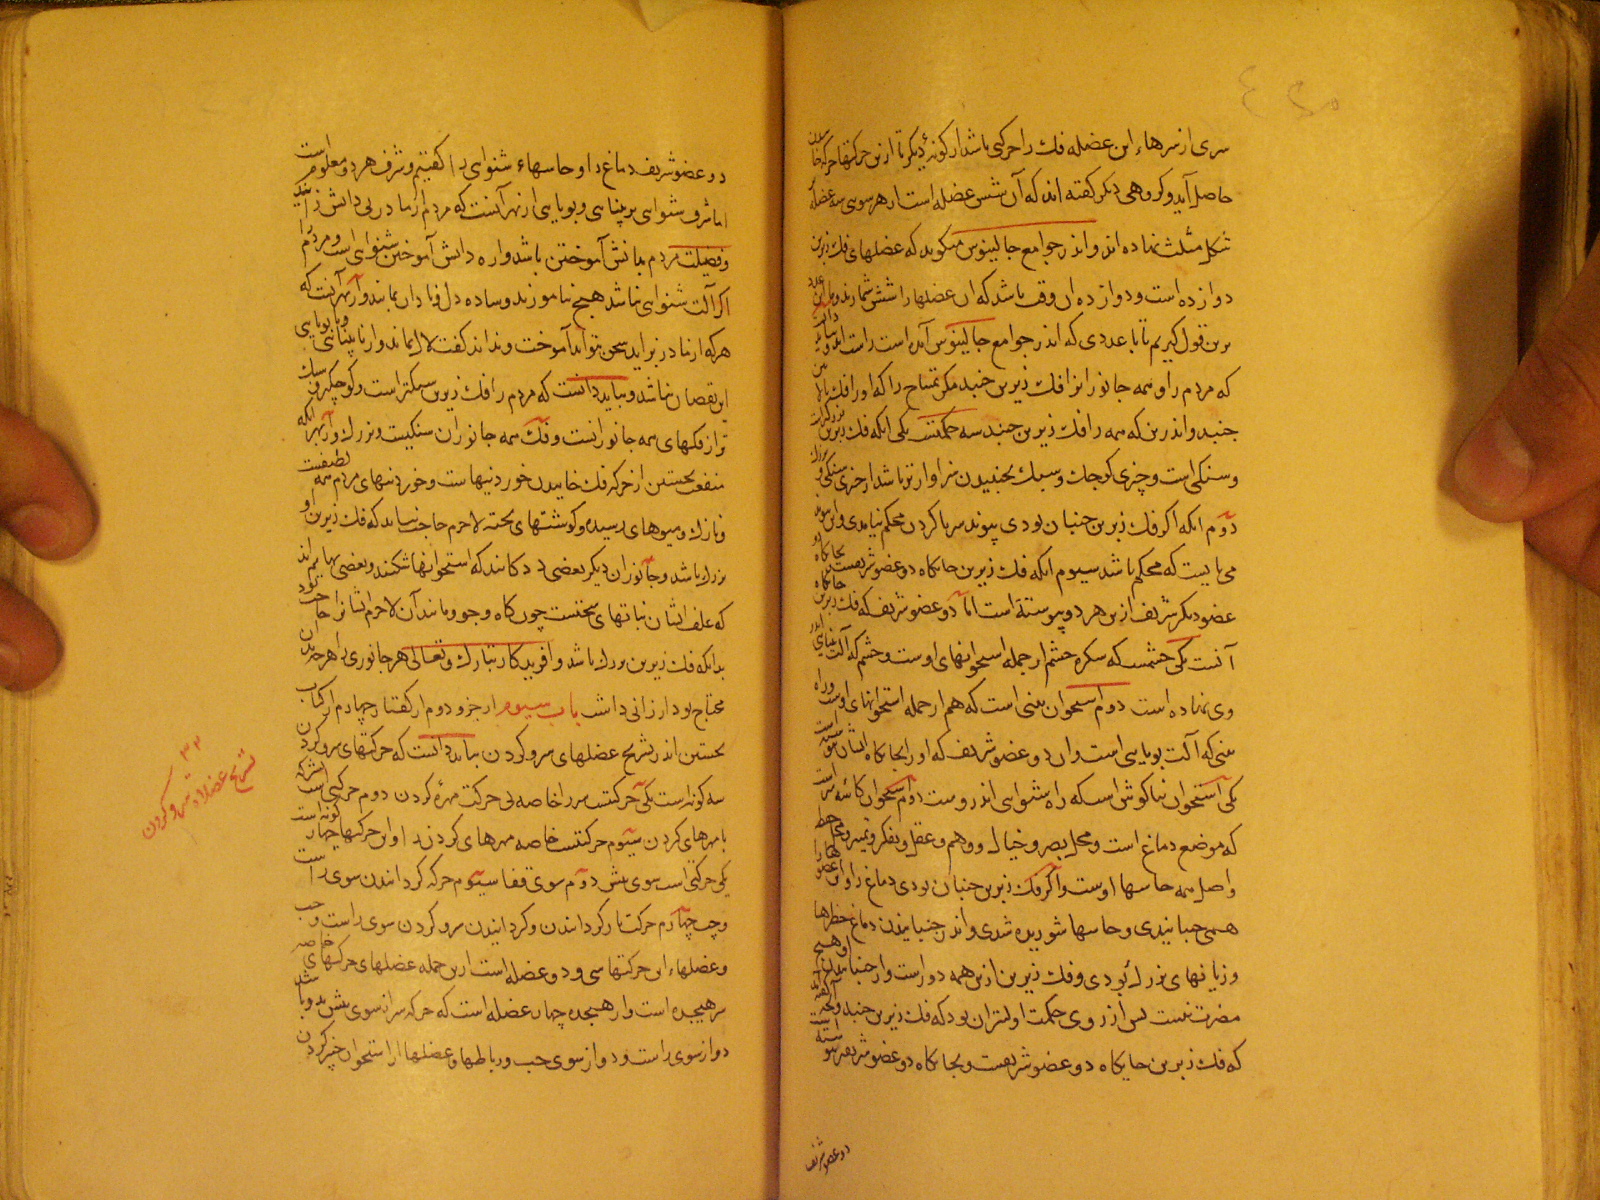 سری از سرهاء این عضله فك را حرکتی باشد از کونهٔ دیکر تا ازین حرکتها حرکة خاییدن
حاصل آید و کروهی دیکر کفته اند که آن شش عضله است از هر سوی سه عضله
شکل مثلث نهاده اند و اندر جوامع جالینوس میکوید که عضلهای فك زیرین
دوازده است و دوازده آن وقت باشد که این عضلها را شش شمارند و ما این عدد
برین قول کیریم تا با عددی که اندر جوامع جالینوس آمده است راست آید و بباید دانست
که مردم را و همه جانوران را فك زیرین جنبد مکر تمساح را که او را فك بالایین
جنبد و اندرین که همه را فك زیرین جنبد سه حکمتست یکی آنکه فك زیرین
وسنکی است و چیزی کوچك و سبك بجنبیدن سزاوارتر باشد از چیزی سنکی و بزرك
دوم آنکه اکر فك زبرین جنبان بودی پیوند سر با کردن محکم نیامدی و این پیوند
می بایست که محکم باشد سیوم آنکه فك زبرین جایکاه دو عضو شریفست و بجایکاه دو
عضو دیکر شریف ازین هر دو پیوسته است اما دو عضو شریف که فك زبرین جایکاه
آنست یکی چشمست که سکره چشم از جمله استخوانهای اوست و چشم که آلت بینایی اندر
وی نهاده است دوم استخوان بینی است که هم از جمله استخوانهای اوست و راه
بینی که آلت بویایی است و آن دو عضو شریف که او را بجایکاه ایشان پیوسته است
یکی استخوان بناکوش است که راه شنوایی اندروست دوم استخوان کاسه سر است
که موضع دماغ است و محل بصر و خیال و وهم و عقل و تفکر و تمیز و محل حفظ
و اصل همه حاسها اوست و اکر فك زبرین جنبان بودی دماغ را و این عضوها را
همی جنبانیدی و حاسها شوریده شدی و اندر جنبانیدن دماغ خطرها
و زیانهای بزرك بودی و فك زیرین ازین همه دورست و از جنبانیدن او هیچ
مضرت نیست پس از روی حکمت اولیتر آن بود که فك زیرین جنبد و آنچه کفته اند
که فك زبرین جایکاه دو عضو شریفست و بجایکاه دو عضو شریف پیوسته
دو عضو شریف
دو عضو شریف دماغ را و حاسهاء شنوای را کفتیم و شرف هر دو معلوم است
اما شرف شنوای بر بینایی و بویایی از بهر آنست که مردم از مادر بی دانش زایند
و فضیلت مردم بدانش آموختن باشد و راه دانش آموختن شنوای است و مردم را
اکر آلت شنوای نباشد هیچ نیاموزند و ساده دل و نادان بمانند و از بهر آنست که
هرکه از مادر کر براید سخن نتواند آموخت و نداند کفت لال بماند و از نابینایی و نابویایی
این نقصان نباشد و بباید دانست که مردم را فك زیرین سبکتر است و کوچکتر
تر از فکهای همه جانورانست و فك همه جانوران سنکیست و بزرك و از بهر آنکه
منفعت نخستین از حرکه فك خاییدن خوردنیهاست و خوردنیهای مردم همه لطیفست
و نازك و میوهای رسیده و کوشتهای پخته لاجرم حاجت نیامد که فك زیرین او
بزرك باشد و جانوران دیکر بعضی ددکانند که استخوانها شکنند و بعضی بهایم اند
که علف ایشان نباتهای سختست چون کاه و جو و مانند آن لاجرم ایشان را حاجت بود
بدانکه فك زیرین بزرك باشد و آفریدکار تبارك و تعالی هر جانوری را هرچه بدان
محتاج بود ارزانی داشت باب سیوم از جزو دوم از کفتار چهارم از کتاب
نخستین اندر تشریح عضلهای سر و کردن بباید دانست که حرکتهای سر و کردن
سه کونه است یکی حرکتیست سر را خاصه بی حرکت مهرهٔ کردن دوم حرکتی است مشترکه
با مهرهای کردن سیوم حرکتیست خاصه مهرهای کردن را و این حرکتها چهار کونه است
یکی حرکتی است سوی پیش دوم سوی قفا سیوم حرکه کردانیدن سوی راست
و چپ چهارم حرکت باز کردانیدن و کردانیدن سر و کردن سوی راست و چپ
و عضلهاء این حرکتها سی و دو عضله است ازین جمله عضلهای حرکتهای خاصه
سر هیجده است و از هیجده چهار عضله است که حرکه سر از سوی پیش بدو باشد
دو از سوی راست و دو از سوی چپ و رباطها و عضلها از استخوان چنبر کردن
۳۲
تشریح عضلات سر و کردن